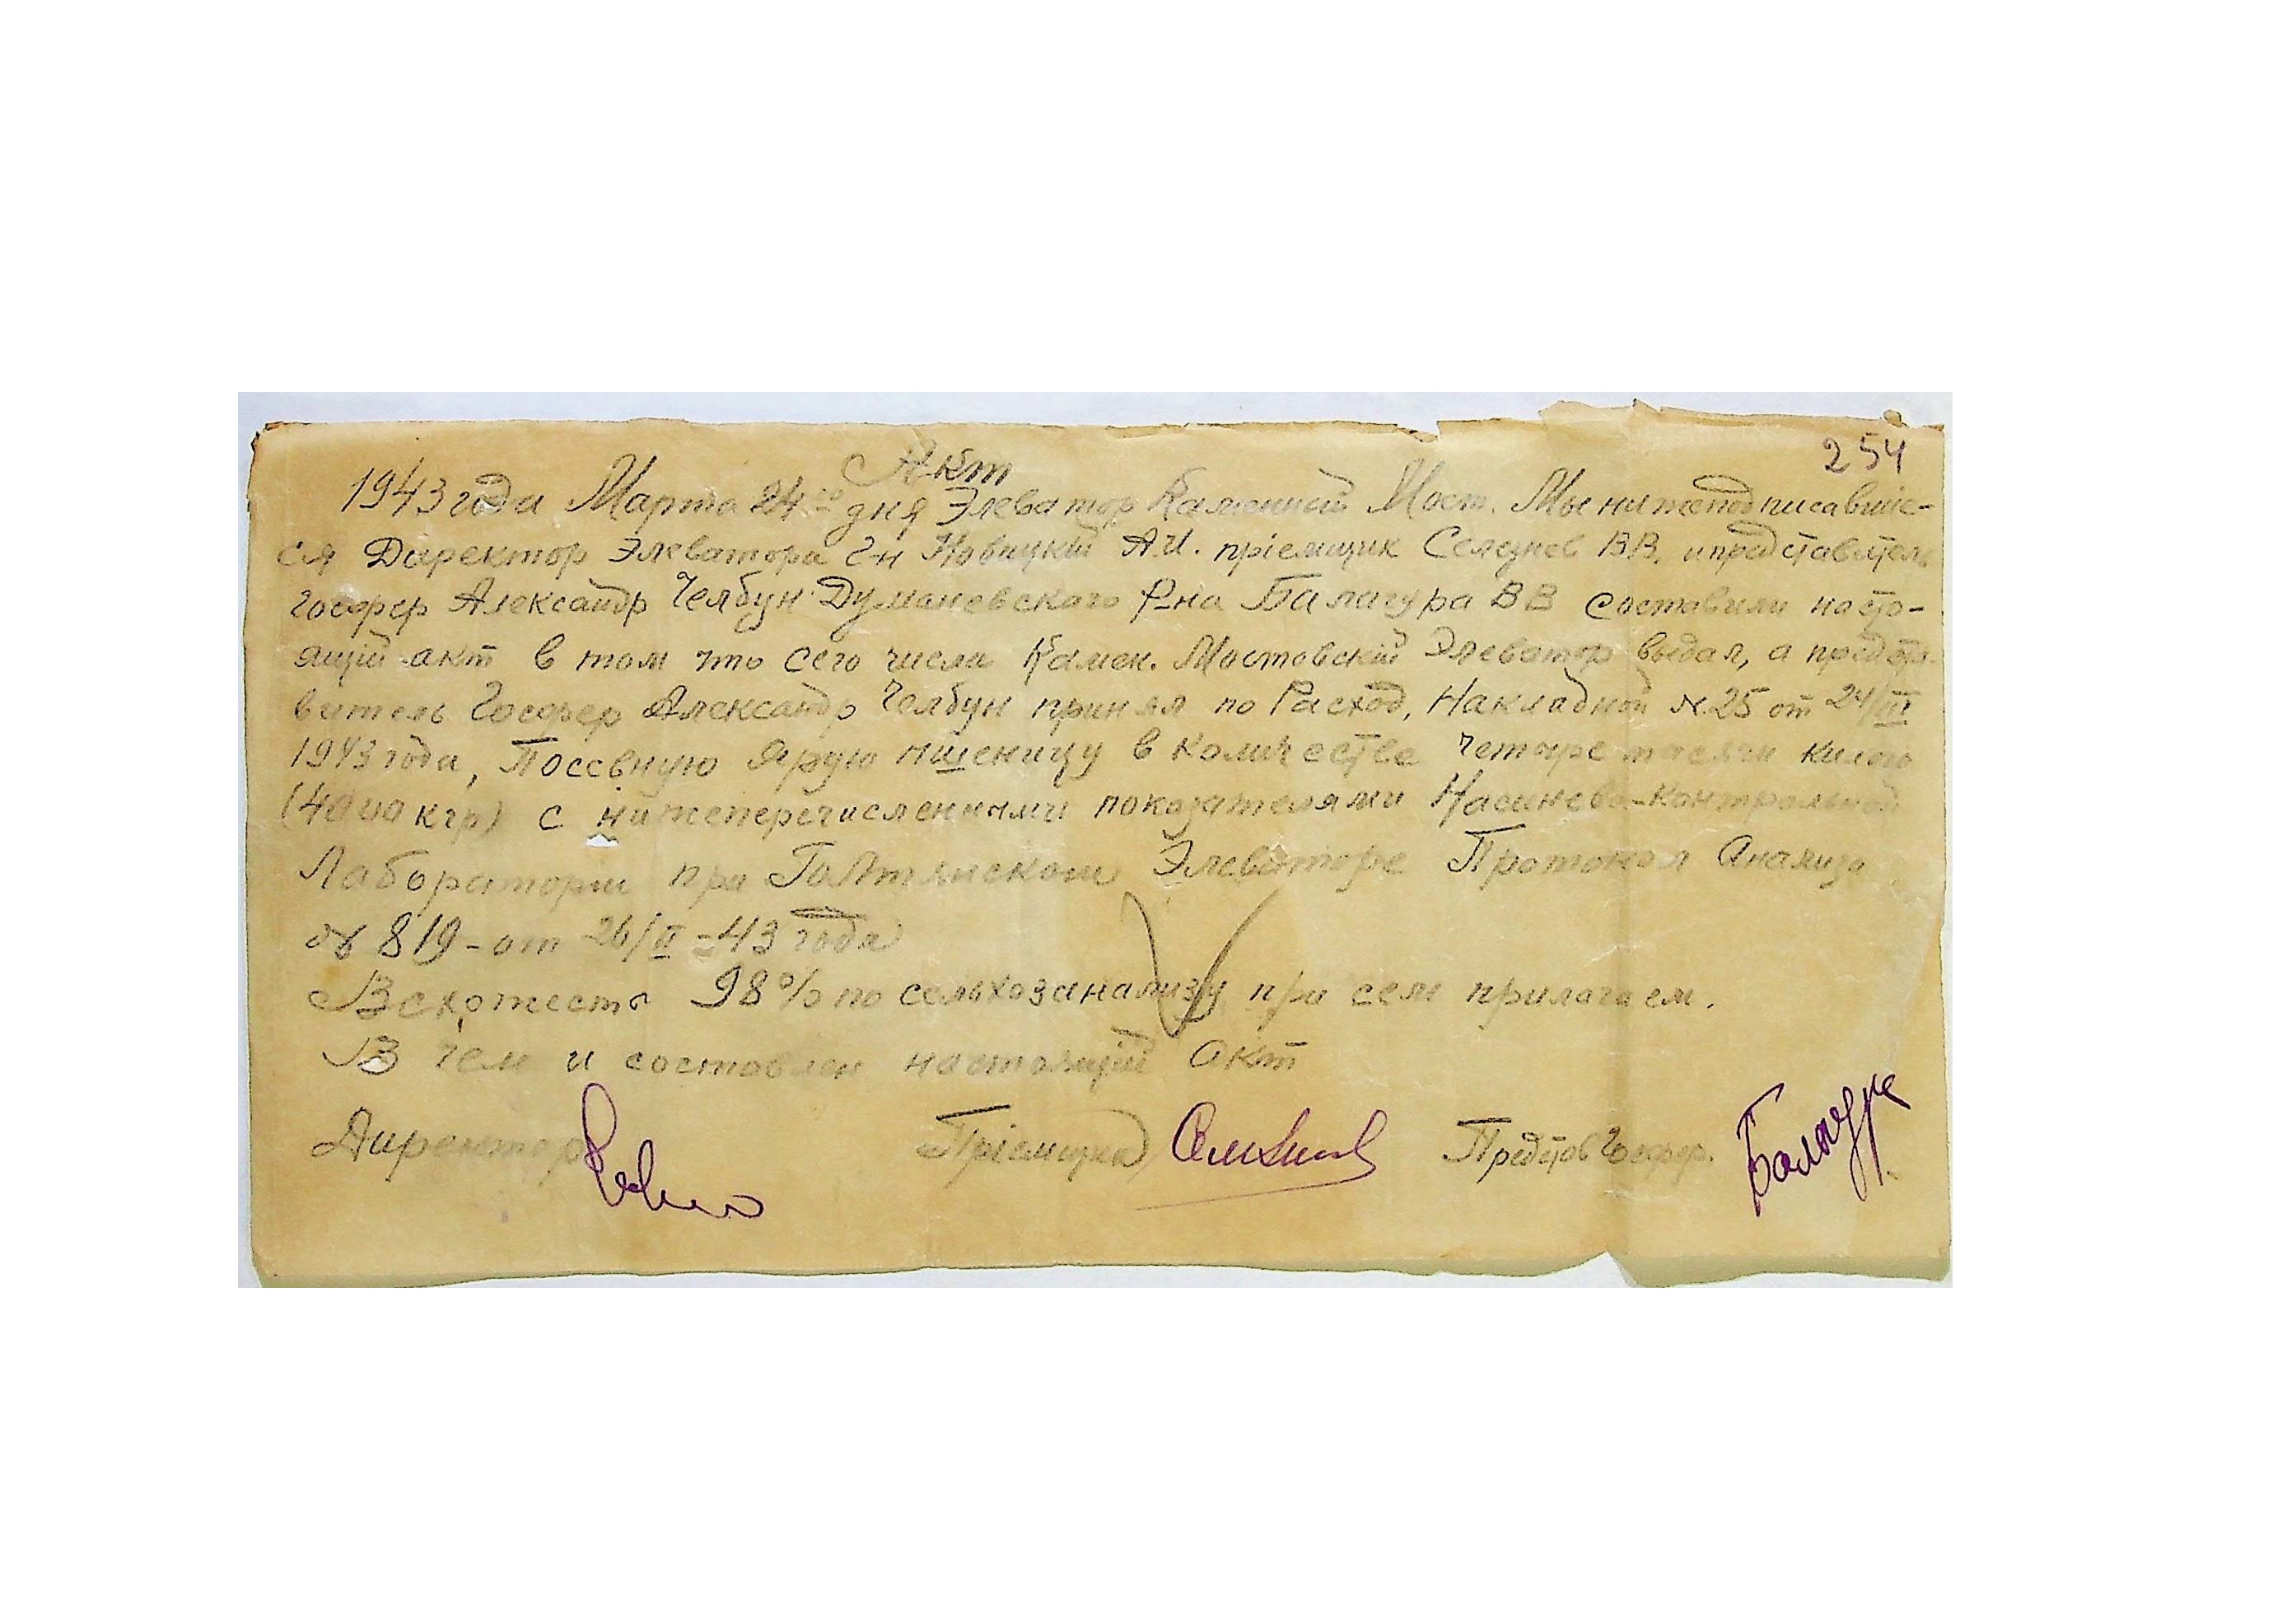 254
Акт
1943 года Марта 24го дня Элеватор Каменный Мост. Мы нижеподписавшие-
ся Директор Элеватора г-н Новицкій А.И. пріемщик Селезнев В.В. и представитель
Госфер Александр Челбун Думаневского р-на Балагура В В составили насто-
ящій акт в том что сего числа Камен. Мостовскій Элеватор выдал, а предста-
витель Госфер Александр Челбун принял по Расход. Накладной № 25 от 24/III
1943 года, Посевную Ярую пшеницу в количестве четыре тысячи кило
(4000 кгр) с нижеперечисленными показателями Насинево-Контрольной
Лаборатории при Голтянском Элеваторе Протокол Анализа
№ 819 - от 26/II - 43 года
Всхожесть 98% по сельхозанализу при сем прилагаем.
В чем и составлен настоящій акт
Директор Пріемщик Предстов Госфер. Балагура